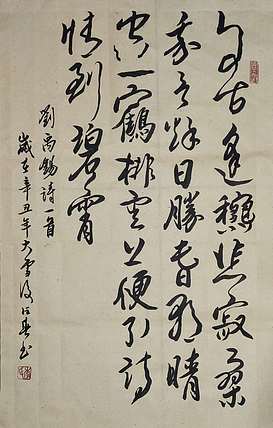 自古逢穐悲寂寥
我言秋日勝春朝晴
空一鶴排雲上便引詩
情到碧霄
劉禹錫詩一首
歲在辛丑年大雪後春書